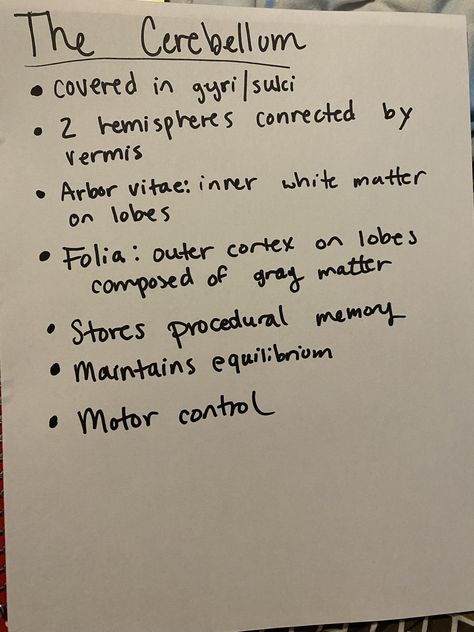 The Cerebellum
• covered in gyri/sulci
• 2 hemispheres connected by
vermis
• Arbor vitae: inner white matter
on lobes
• Folia: outer cortex on lobes
composed of gray matter
• Stores procedural memory
• Maintains equilibrium
• Motor control